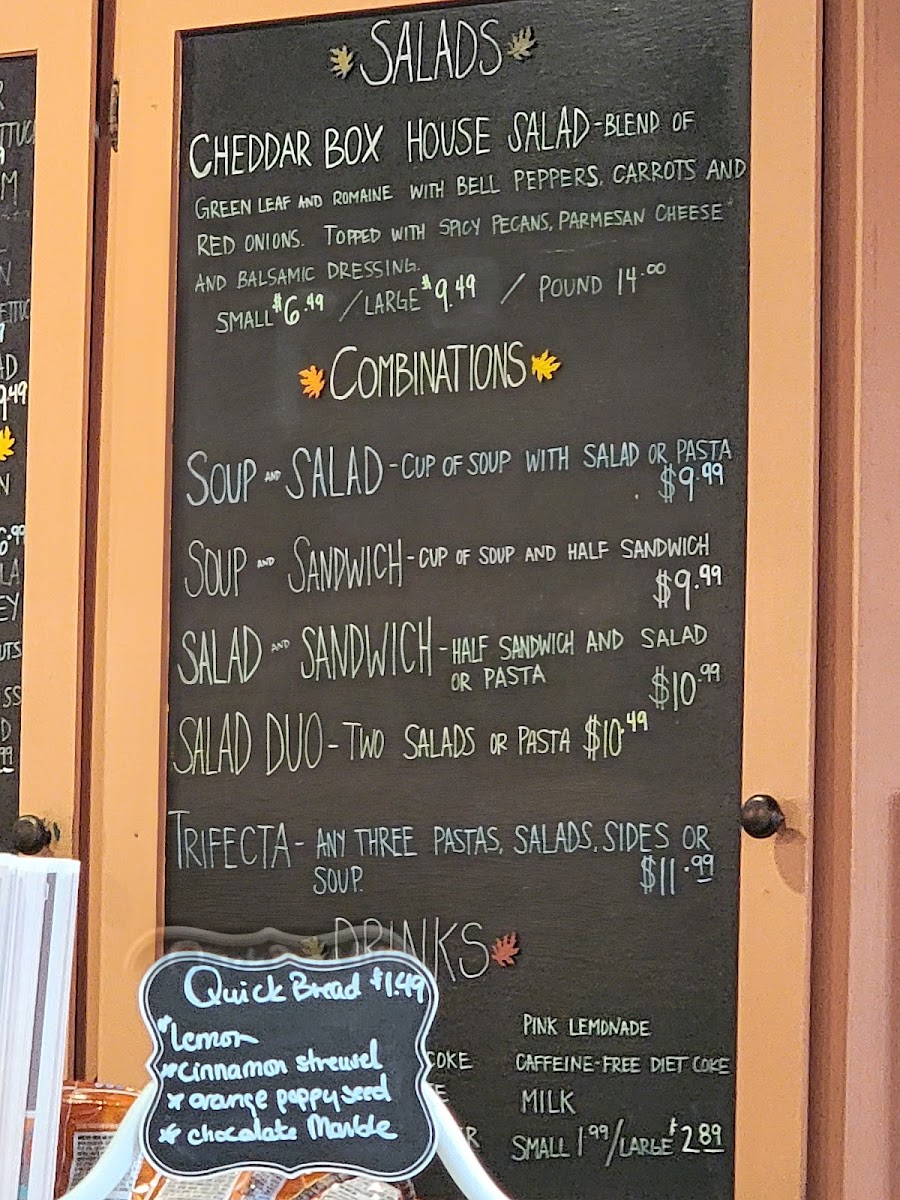 SALADS
CHEDDAR BOX HOUSE SALAD-BLEND OF
GREEN LEAF AND ROMAINE WITH BELL PEPPERS, CARROTS AND
RED ONIONS. TOPPED WITH SPICY PECANS, PARMESAN CHEESE
AND BALSAMIC DRESSING.
SMALL $6.49 / LARGE $9.49 / POUND 14.00
COMBINATIONS
SOUP AND SALAD-CUP OF SOUP WITH SALAD OR PASTA
$9.99
SOUP AND SANDWICH-CUP OF SOUP AND HALF SANDWICH
$9.99
SALAD AND SANDWICH-HALF SANDWICH AND SALAD
OR PASTA
$10.99
SALAD DUO-TWO SALADS OR PASTA $10.49
TRIFECTA-ANY THREE PASTAS, SALADS, SIDES OR
SOUP. $11.99
DRINKS
PINK LEMONADE
COKE CAFFEINE-FREE DIET COKE
MILK
SMALL 1.99/LARGE $2.89
Quick Bread $1.49
*Lemon
*cinnamon streusel
*orange poppyseed
*chocolate Marble